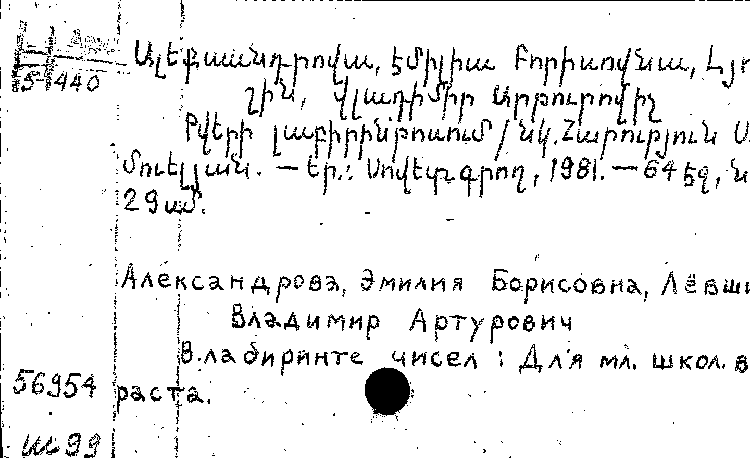 5 1440
Ալեքսանդրովա, Էմիլիա Բորիսովնա, Լյո
շին, Վլադիմիր Արթուրովիչ
Թվերի լաբիրինթոսում / նկ. Հարություն Ս
մուելյան. — Եր.: Սովետ. գրող, 1981. — 64 էջ, ն
29 սմ.
Александрова, Эмилия Борисовна, Лёвши
Владимир Артурович
В лабиринте чисел : Для мл. школ. в
56954 раста.
ա 99